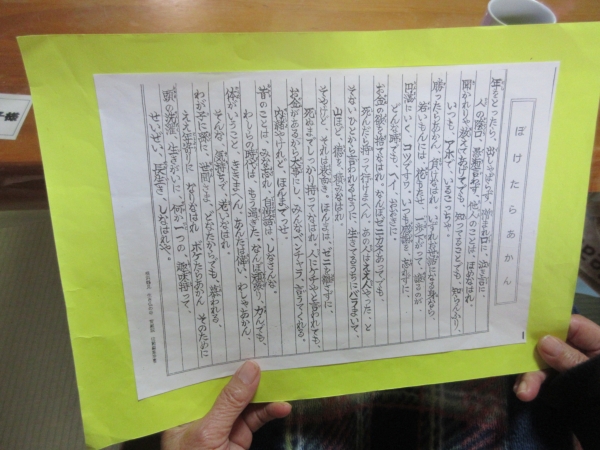 ぼけたらあかん
年をとったら 出しゃばらず 憎まれ口に 泣き言に
人の陰口 愚痴言わず 他人のことは ほめなはれ
聞かれりゃ 教えてあげても 知ってることでも 知らんふり
いつも アホで いるこっちゃ
勝ったらあかん 負けなはれ いずれお世話に なる身なら
若いもんには 花もたせ 一歩さがって 譲るのが
円満にいく コツですわ いつも感謝を 忘れずに
どんな時でも へえ おおきに
お金の欲を 捨てなはれ なんぼゼニカネ あってでも
死んだら持って 行けまへん あの人は ええ人やった と
そないに ひとから 言われるように 生きてるうちに バラまいて
山ほど 徳を 積みなはれ
そやけど それは 表向き ほんまは ゼニを 離さずに
死ぬまで しっかり 持ってなはれ 人にケチやと 言われても
お金があるから 大事にし みんな ベンチャラ 言うてくれる
内緒やけれど ほんまでっせ
昔のことは みな忘れ 自慢話は しなさんな
わしらの時代は もう過ぎた なんぼ頑張り 力んでも
体がいうこと ききまへん あんたは偉い わしゃあかん
そんな 気持ちで おりなはれ
わが子に 孫に 世間さま どなたからでも 慕われる
ええ年寄りに なりなはれ ボケたらあかん そのために
頭の洗濯 生きがいに 何か 一つの 趣味持って
せいぜい 長生き しなはれや